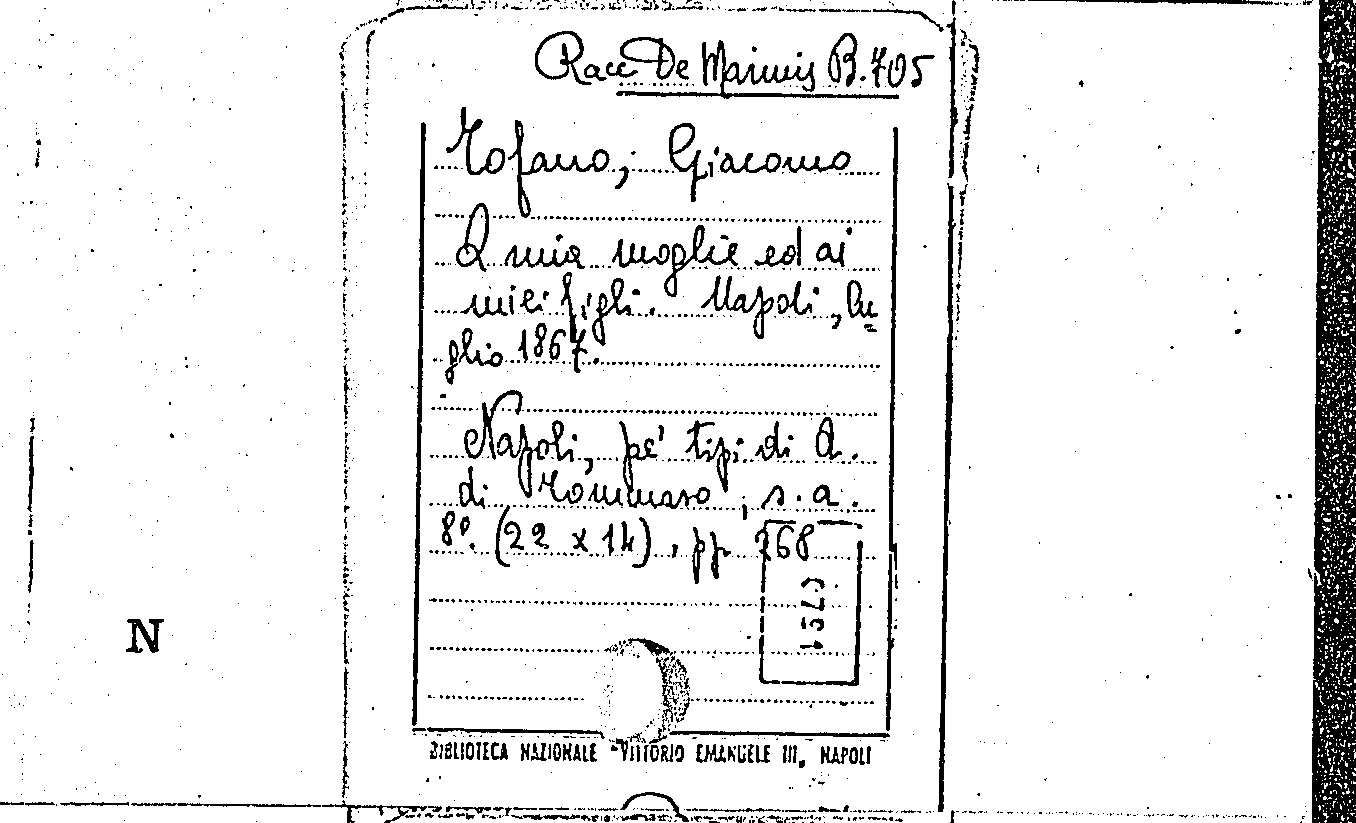 Racc De Marinis B.705
Tofano, Giacomo
A mia moglie ed ai
miei figli. Napoli, lu
glio 1867.
Napoli, pe' tipi di A.
di Tommaso, s.a.
8º. (22 x 14), pp. 268
N
BIBLIOTECA NAZIONALE - VITTORIO EMANUELE III, NAPOLI